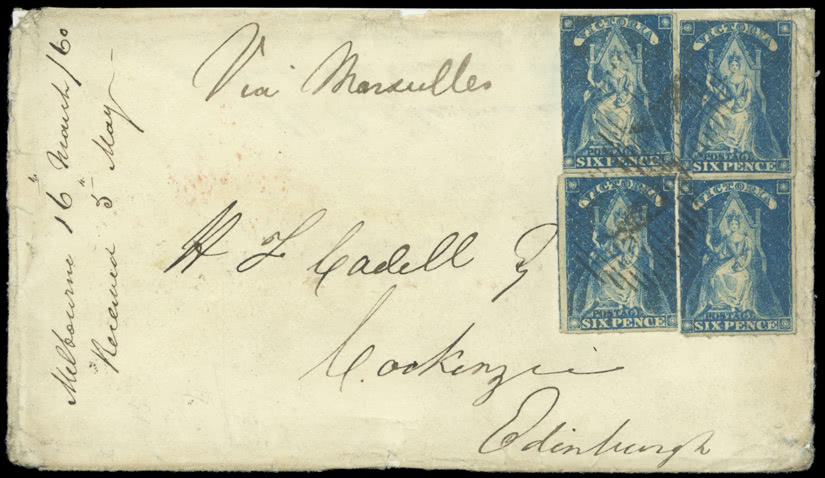 Melbourne 16" March /60
Received 5" May -
Via Marseilles
H F Cadell Esq
Cockenzie
Edinburgh
VICTORIA
POSTAGE
SIX PENCE
VICTORIA
POSTAGE
SIX PENCE
VICTORIA
POSTAGE
SIX PENCE
VICTORIA
POSTAGE
SIX PENCE